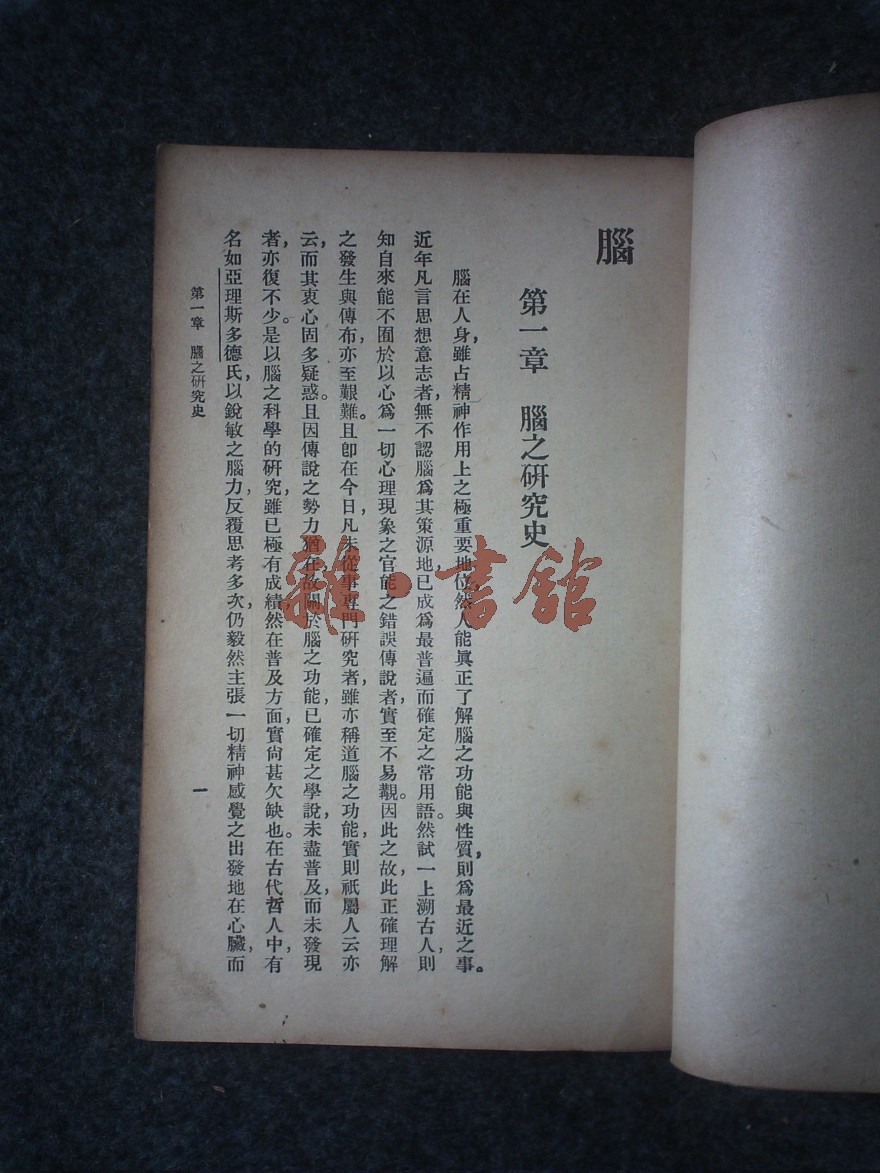 腦
第一章　腦之研究史
腦在人身，雖占精神作用上之極重要地位，然人能眞正了解腦之功能與性質，則爲最近之事。
近年凡言思想意志者，無不認腦爲其策源地，已成爲最普遍而確定之常用語。然試一上溯古人，則
知自來能不囿於以心爲一切心理現象之官能之錯誤傳說者，實至不易覯。因此之故，此正確理解
之發生與傳布，亦至艱難。且卽在今日，凡未從事專門研究者，雖亦稱道腦之功能，實則祇屬人云亦
云，而其衷心固多疑惑。且因傳說之勢力猶在，故關於腦之功能，已確定之學說，未盡普及，而未發現
者，亦復不少。是以腦之科學的研究，雖已極有成績，然在普及方面，實尙甚欠缺也。在古代哲人中，有
名如亞理斯多德氏，以銳敏之腦力，反覆思考多次，仍毅然主張一切精神感覺之出發地在心臟，而
第一章　腦之研究史
一
雜·書館